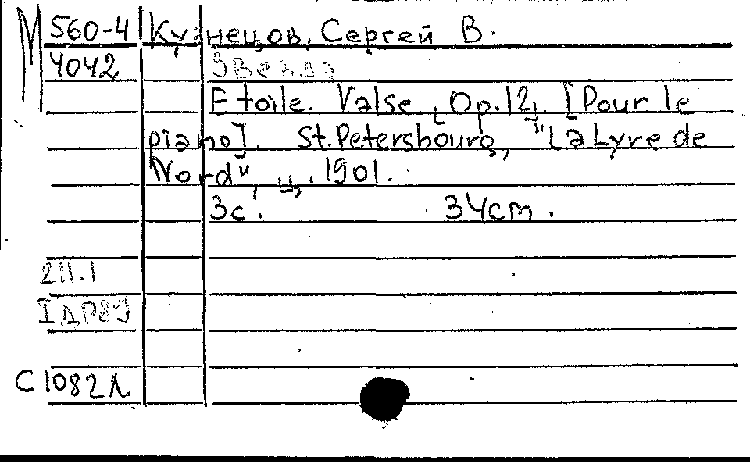 М 560-4 Кузнецов, Сергей В.
4042 Звезда
Etoile. Valse, Op.12, [Pour le
piano]. St. Petersbourg, "La Lyre de
Nord", ц. 1901.
3с. 34cm.
211.1
С 1082Л